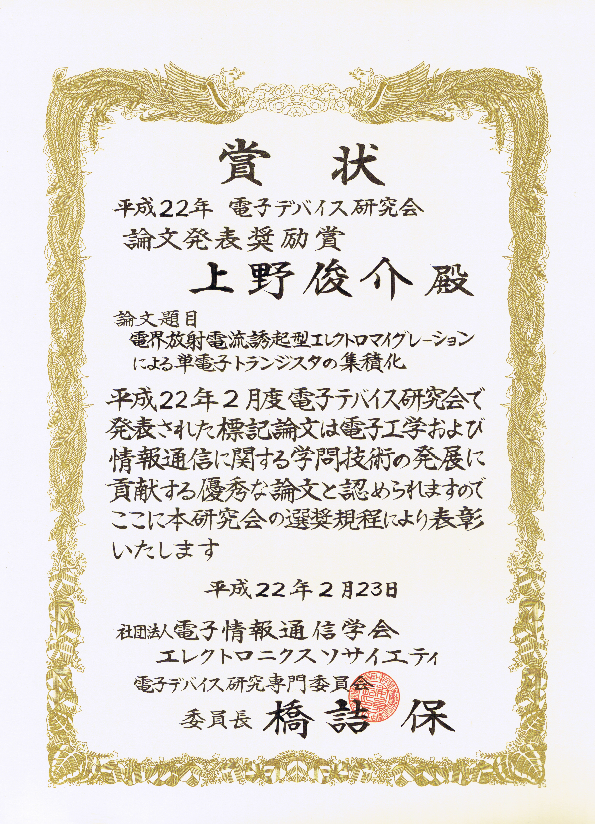 賞状
平成22年 電子デバイス研究会
論文発表奨励賞
上野俊介 殿
論文題目
電界放射電流誘起型エレクトロマイグレーション
による単電子トランジスタの集積化
平成22年2月度電子デバイス研究会で
発表された標記論文は電子工学および
情報通信に関する学問技術の発展に
貢献する優秀な論文と認められますので
ここに本研究会の選奨規程により表彰
いたします
平成22年2月23日
社団法人電子情報通信学会
エレクトロニクスソサイエティ
電子デバイス研究専門委員会
委員長 橋詰 保